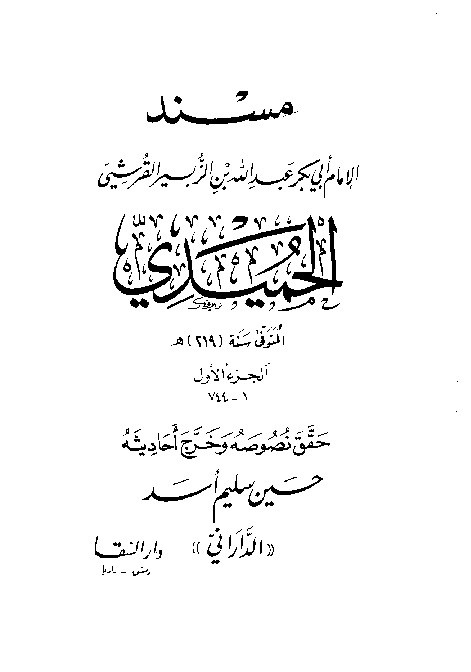 مسند
الإمام أبي بكر عبد الله بن الزُّبير القُرشيّ
الحُمَيْدِيّ
المُتَوَفّى سَنَة (٢١٩) هـ
الجزء الأول
١ - ٧٤٤
حَقَّقَ نُصُوصَهُ وَخَرَّجَ أَحَادِيثَهُ
حسين سليم أسد
«الدَّارَانيّ» دار السقا
دمشق - داريا